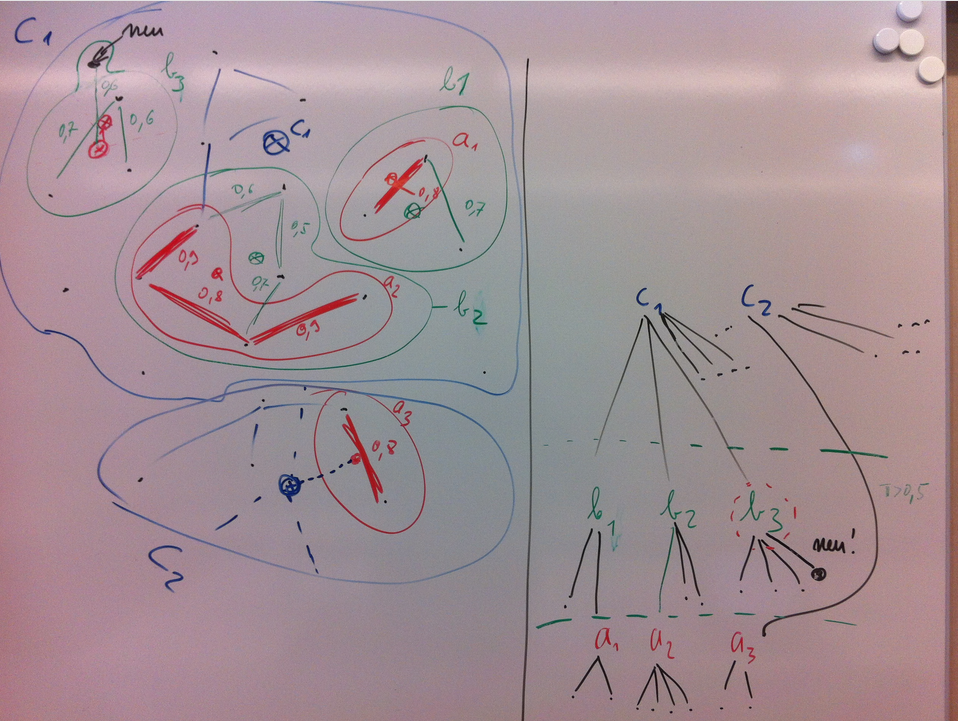 C1
neu
b3
0,6
0,7
0,6
C1
b1
a1
0,8
0,7
0,6
0,5
0,9
0,8
0,7
0,9
a2
b2
a3
0,8
C2
C1 C2
b1 b2 b3
neu!
a1 a2 a3